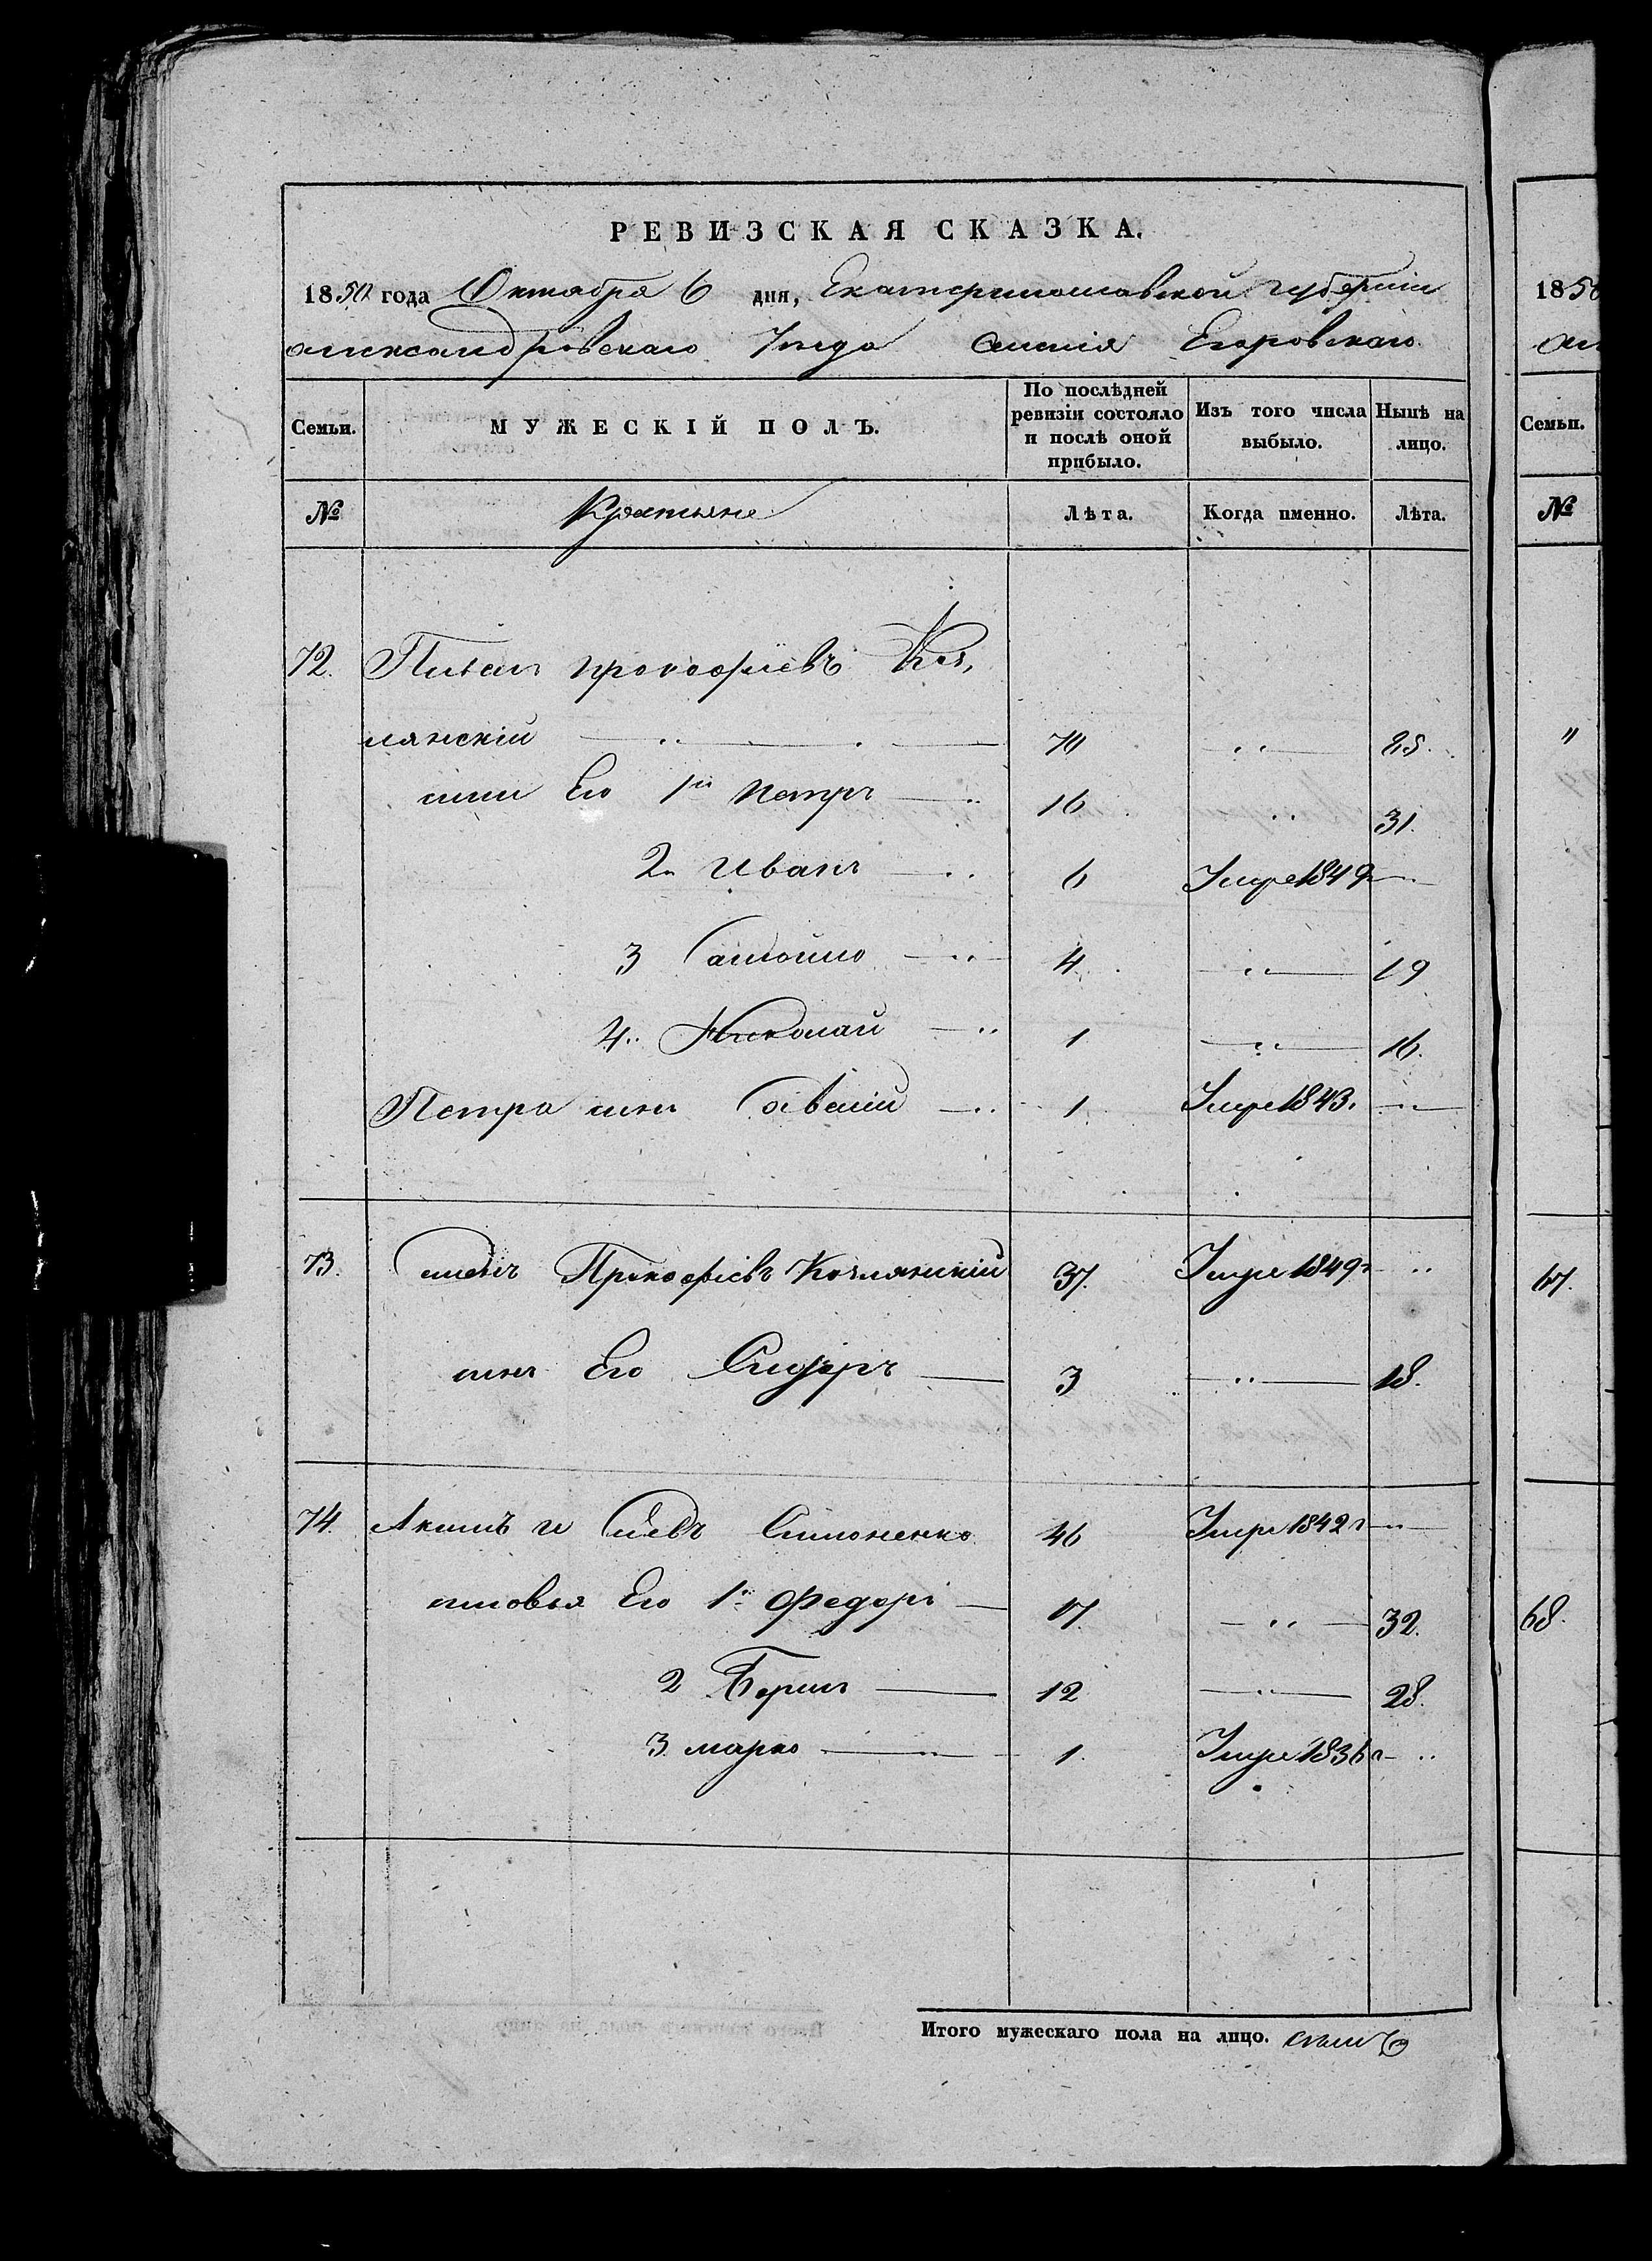 РЕВИЗСКАЯ СКАЗКА.
1850 года Октября 6 дня, Екатеринославской губерніи
александровскаго Уезда Егоровскаго
Семьи. МУЖЕСКІЙ ПОЛЪ. По послѣдней ревизіи состояло и послѣ оной прибыло. Изъ того числа выбыло. Нынѣ на лицо.
№ Крестьяне Лѣта. Когда именно. Лѣта.
72. прокофіевъ Коч,
лянскій 70 85.
Его 1й петръ 16 31.
2й Иванъ 6 Умре 1849
3 Самойло 4 19
4. Николай 1 16.
Петра сынъ 1 Умре 1843.
73. Прокофіевъ Кочлянскій 37. Умре 1849г
сынъ Его Сидоръ 3 18.
74. Акимъ Симоненко 46 Умре 1842г
сыновья Его 1й Федоръ 17. 32.
2 Борисъ 12 28.
3 марко 1. Умре 1836г
Итого мужескаго пола на лицо.
1850
Семьи.
№
"
67.
68.